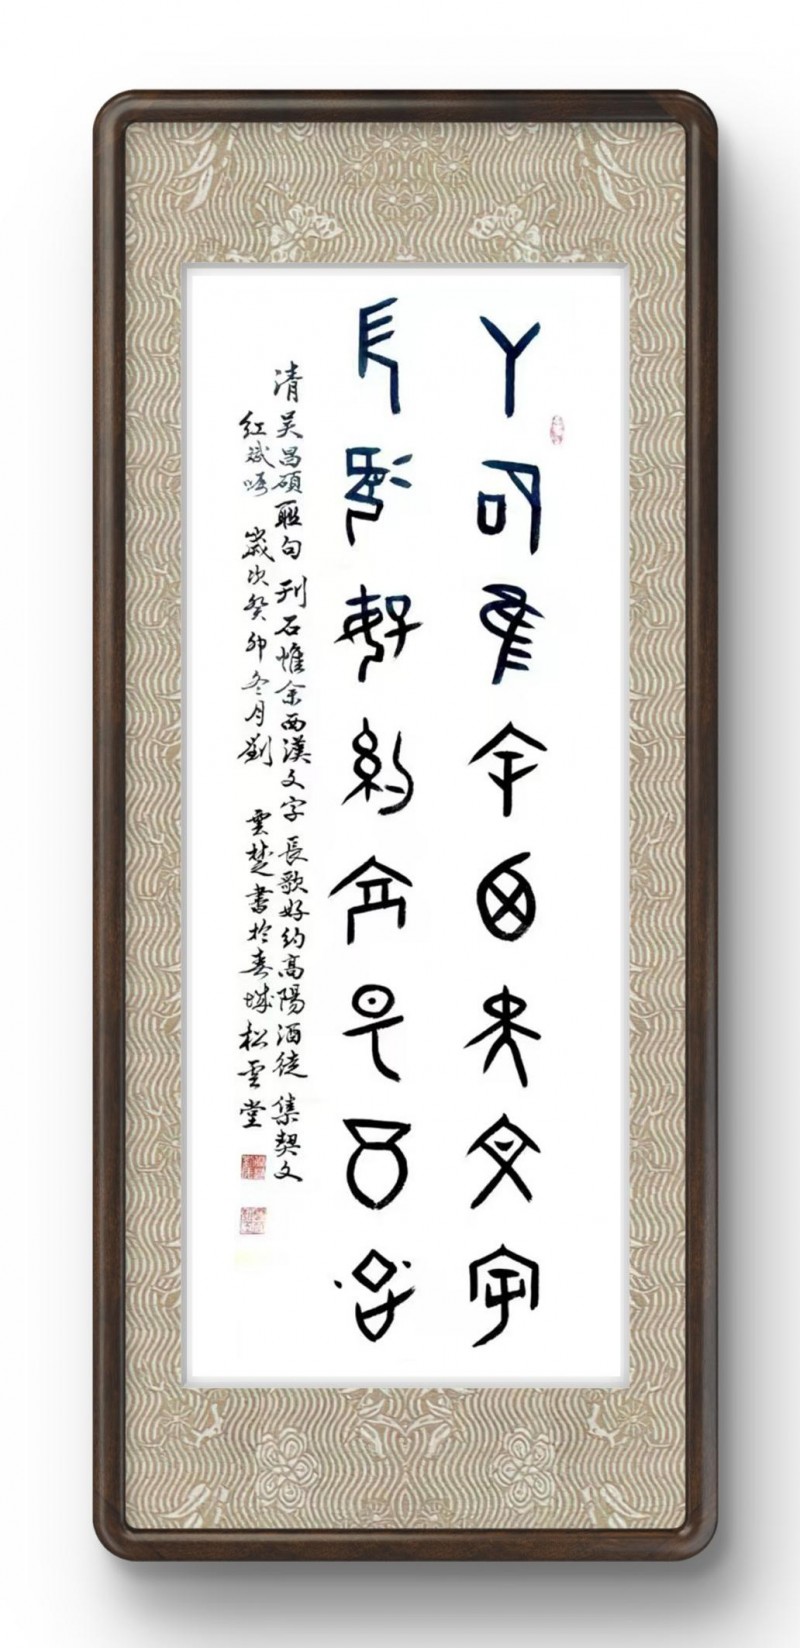 刊石惟余西漢文字
長歌好約高陽酒徒
清吴昌碩聯句 刊石惟余西漢文字 長歌好約高陽酒徒 集契文
歲次癸卯冬月劉 雲楚書於春城松雲堂